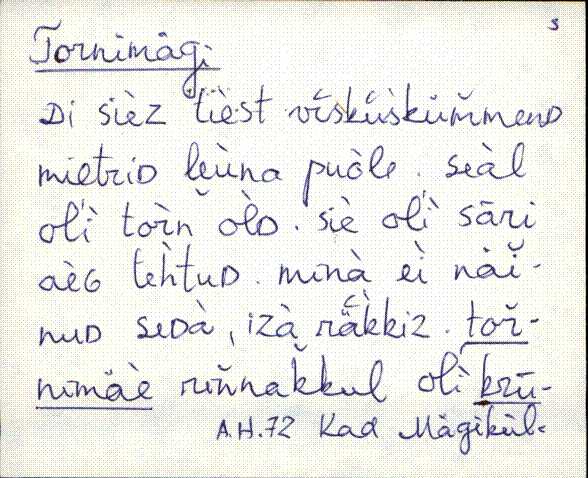 s
Tornimägi.
Di sièz tìest vīskü̆skŭm̆menD
mietriD leùna puòle. seàl
olì tor̀n òlD. siè olì sāri
aèG teh̀tuD. minà eì näì̆-
nuD seDà, izà räkkiz. tor̆-
nimäè rin̆nak̆kul olì krū-
A.H.72 Kad Mägikül.